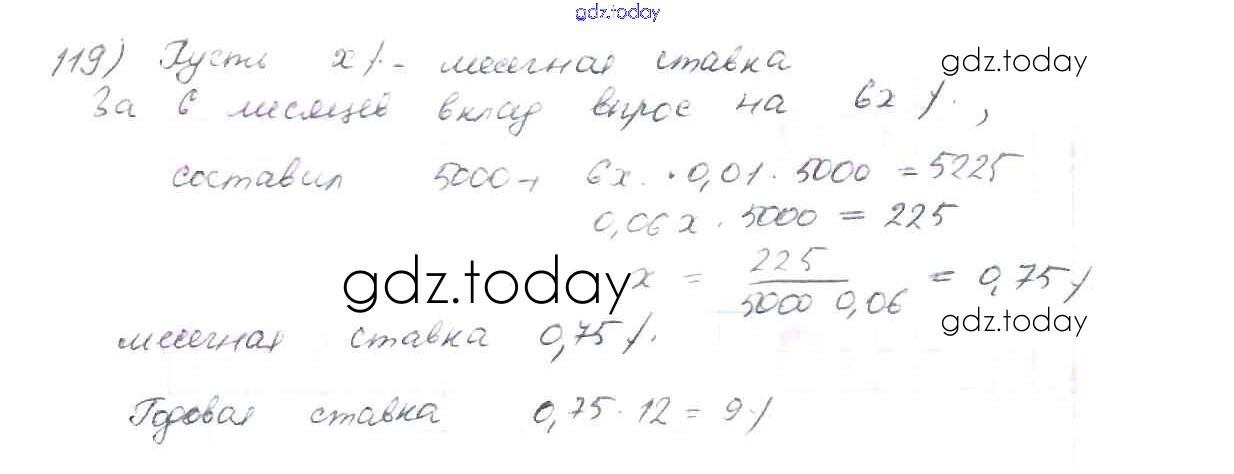 gdz.today
119) Пусть x% - месячная ставка gdz.today
За 6 месяцев вклад вырос на 6x %,
составил 5000 + 6x · 0,01 · 5000 = 5225
0,06x · 5000 = 225
gdz.today x = 225 / 5000 0,06 = 0,75%
gdz.today
месячная ставка 0,75%.
Годовая ставка 0,75 · 12 = 9%